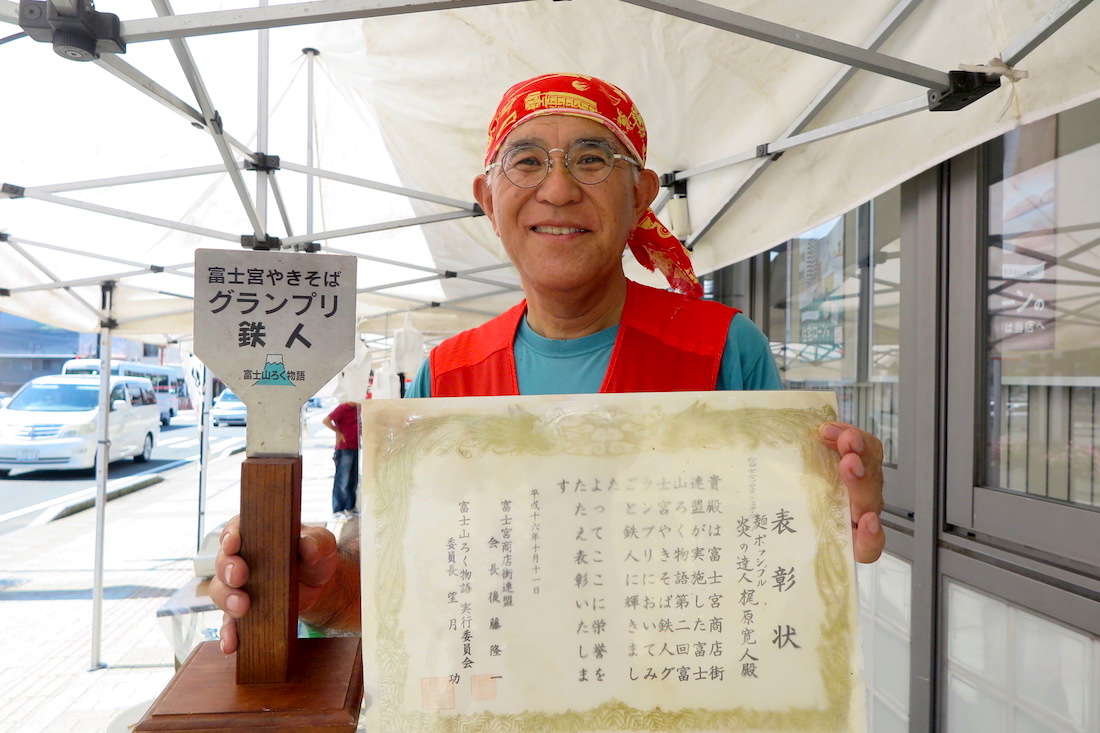 富士宮やきそば
グランプリ
鉄人
富士山ろく物語
表彰状
麺ポッシブル
炎の達人 梶原寛人殿
貴殿は富士宮商店街
連盟が実施した富士
山ろく物語第二回富
士宮やきそば鉄人グ
ランプリにおいてみ
ごと鉄人に輝きまし
た
よってここに栄誉を
たたえ表彰いたしま
す
平成十六年十月十一日
富士宮商店街連盟
会長 後藤隆一
富士山ろく物語 実行委員会
委員長 望月 功
ーンの
は当店へ